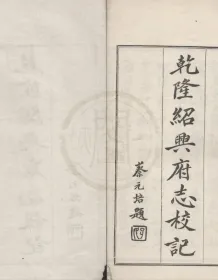 乾隆紹興府志校記
蔡元培題